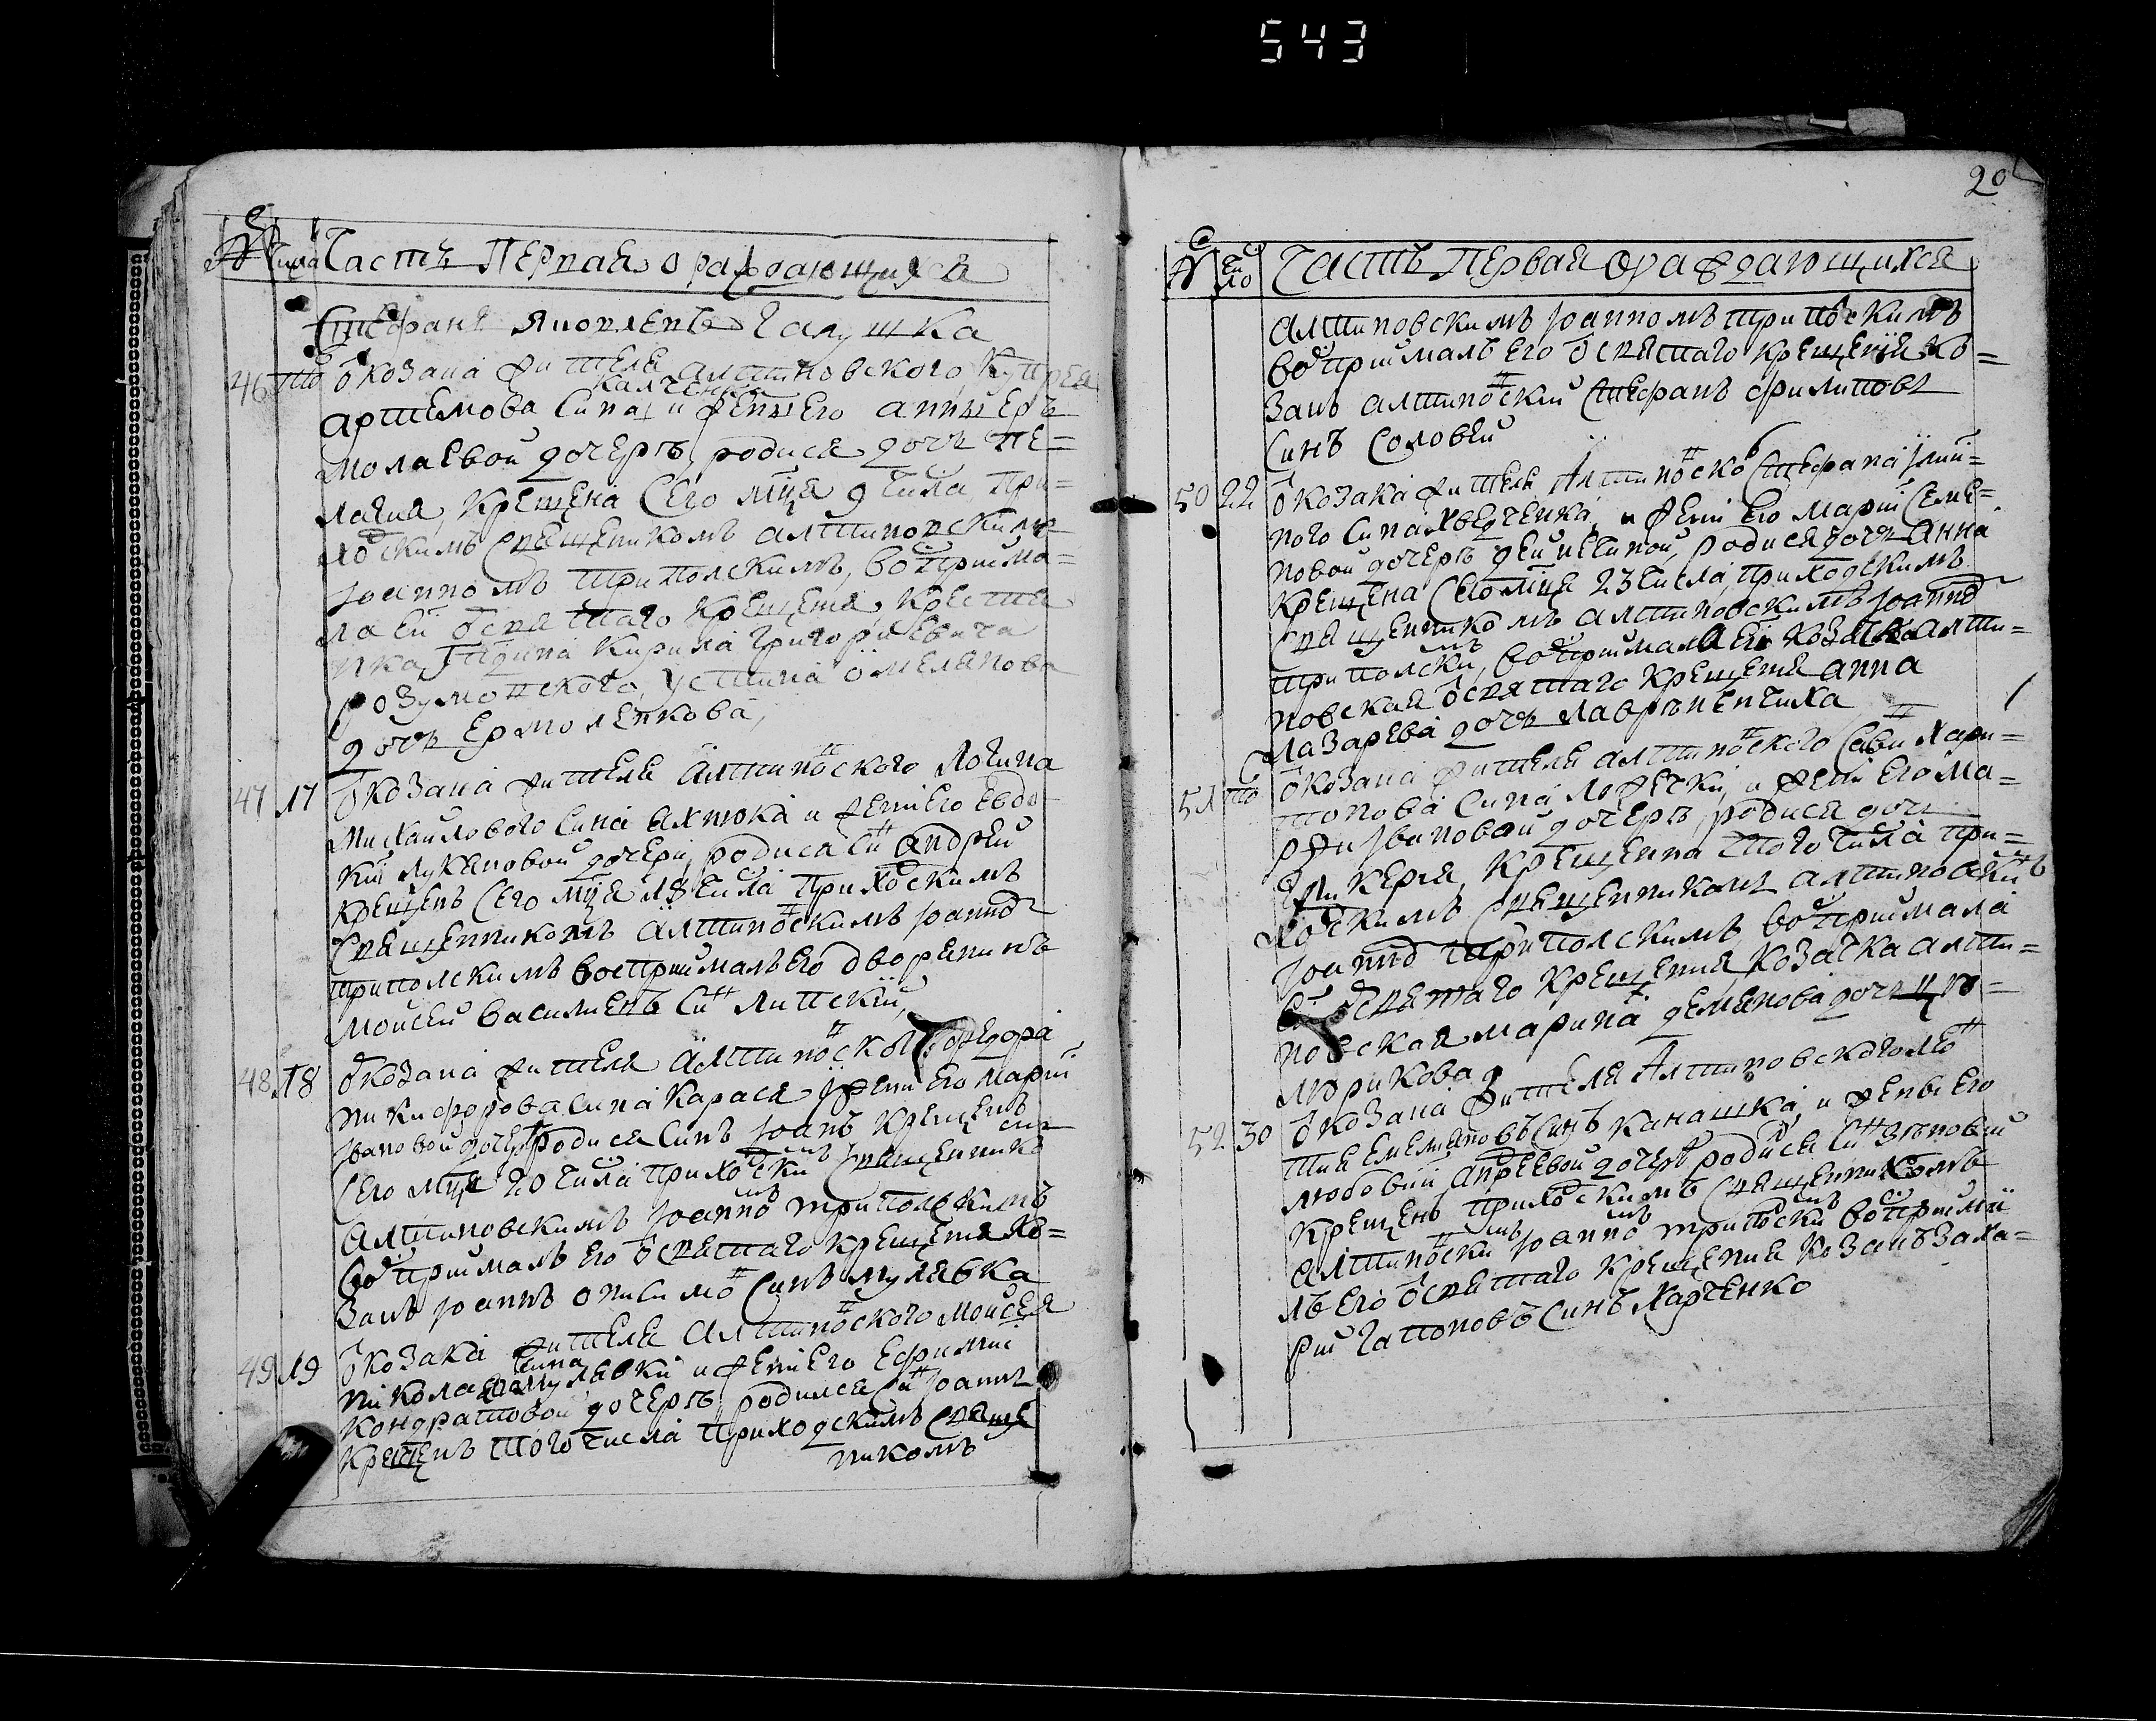 543
№ числа Часть Первая о раждающихся
Стефанъ Яковлевъ Галушка
46 то ӧ козака жителя алтиновского Купрея
Калченка
артемова сина и жени его анни ер
молаевой дочерѣ, родися дочь пе=
лагия, крещена сего мця 9 числа, при=
ходскимъ священикомъ алтиновскимъ
Іоанномъ триполскимъ, воспріима=
ла ей ѿ святаго крещенія, крестя
нка, Кирила григориевича
розумовского, устина ӧмелянова
дочь Ермоленкова,
47 17 ӧ козака жителя Алтиновского Логина
Михайлового сина Яхнюка и жени его Евдо
кіи лукяновой дочери, родися синъ андрей
крещенъ сего мця 18 числа приходскимъ
священникомъ Алтиновскимъ Іоанно
триполскимъ воспріималъ его дворянинъ
Моисей василиевъ синъ липскій,
48 18 ӧ козака жителя Алтиновского федора
никифорова сина Карася и жени его маріи
Ивановой дочерѣ родися синъ Іоанъ крещенъ
сего мця 20 числа приходским священнико
Алтиновскимъ Іоанномъ триполскимъ
воспріималъ его ѿ святаго крещенія ко=
закъ Іоаннъ онисимовъ синъ мулявка
49 19 ӧ козака жителя Алтиновского моисея
сина
николаева мулявки и жени его Ефиміи
кондратовой дочерѣ родился синъ Іоаннъ
крещенъ того числа приходскимъ свяще
никомъ
20
№ число Часть Первая о раждающихся
алтиновскимъ Іоанномъ триполскимъ
воспріималъ его ѿ святаго крещенія ко=
закъ алтиновскій Стефанъ филиповъ
синъ Соловей
50 22 ӧ козака жителя Алтиновского Стефана Іліи=
ного сина Хведченка, и жени его маріи Семе=
новой дочерѣ, родися дочь Анна
крещена сего мця 23 числа, приходскимъ
священникомъ алтиновскимъ Іоанно
триполским, воспріимала ей козачка алти=
новская ѿ святаго крещенія анна
лазарева дочь лаврѣненчиха
51 то ӧ козака жителя алтиновского Сави Хари=
тонова сина ложечки, и жени его ма=
рѣи Ивановой дочерѣ, родися дочь
керия, крещенна того числа при=
ходскимъ священникомъ алтиновскимъ
Іоанно триполскимъ, воспріимала
ей ѿ святаго крещения, козачка алти=
новская марина демянова дочь цю=
люрикова
52 30 ӧ козака жителя Алтиновского лео
тия емеляновъ синъ Канашка, и женѣ его
любовии андреевой дочерѣ родися синъ Зѣновий
крещенъ приходскимъ священникомъ
Алтиновским Іоанном триполским воспріима
лъ его ѿ святаго крещения козакъ заха=
рий гапоновъ синъ Харченко